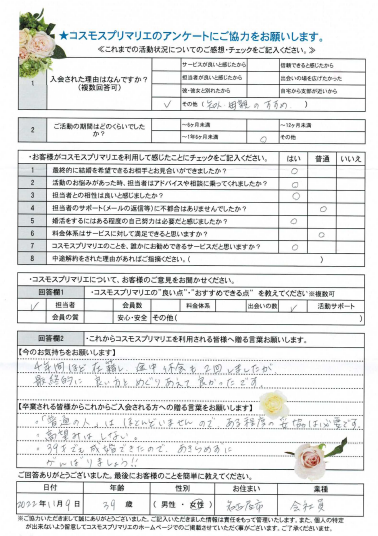 ★コスモスプリマリエのアンケートにご協力をお願いします。
≪これまでの活動状況についてのご感想・チェックをご記入ください。≫
1 入会された理由はなんですか？（複数回答可）
サービスが良いと感じたから 信頼できると感じたから
担当者が良いと感じたから 出会いの場を広げたかった
彼・彼女と別れたから 自宅から支部が近いから
✓ その他（ のすすめ ）
2 ご活動の期間はどのくらいでしたか？
～6ヶ月未満 ～12ヶ月未満
～1年6ヶ月未満 ○ その他
・お客様がコスモスプリマリエを利用して感じたことにチェックをご記入ください。 はい 普通 いいえ
1 最終的に結婚を希望できるお相手とお見合いができましたか？ ○
2 活動のお悩みがあった時、担当者はアドバイスや相談に乗ってくれましたか？ ○
3 担当者との相性は良いと感じましたか？ ○
4 担当者のサポート(メールの返信等)に不都合はありませんでしたか？ ○
5 婚活をするにはある程度の自己努力は必要だと感じましたか？ ○
6 料金体系はサービスに対して満足できると思いますか？ ○
7 コスモスプリマリエのことを、誰かにお勧めできるサービスだと思いますか？ ○
8 中途解約をされた理由があればご指摘ください。（ ）
・コスモスプリマリエについて、お客様のご意見をお聞かせください。
回答欄1 ・コスモスプリマリエの“良い点”・“おすすめできる点” を教えてください※複数可
✓ 担当者 会員数 料金体系 出会いの数 ✓ 活動サポート
会員の質 安心・安全 その他（ ）
回答欄2 ・これからコスモスプリマリエを利用される皆様へ贈る言葉お願いします。
【今のお気持ちをお願いします】
4年間ほど在籍し、途中休会も2回しましたが
最終的に良い方とめぐりあえて良かったです。
【卒業される皆様からこれからご入会する方への贈る言葉をお願いします】
・「普通の人」は、ほとんどいませんので、ある程度の妥協は必要です。
・高望みはしない。
・39才でも成婚できたので、あきらめずに
がんばりましょう!!
ご回答ありがとうございました。最後にお客様のことを簡単に教えてください。
日付 年齢 性別 お住まい 業種
2022年11月9日 39 歳 （ 男性 ・ 女性 ） 名古屋市 会社員
※ご協力いただきまして誠にありがとうございました。ご記入いただきました情報は責任をもって管理いたします。また、個人の特定
が出来ないよう留意してコスモスプリマリエのホームページでのご掲載させていただく事がございます。ご了承くださいませ。